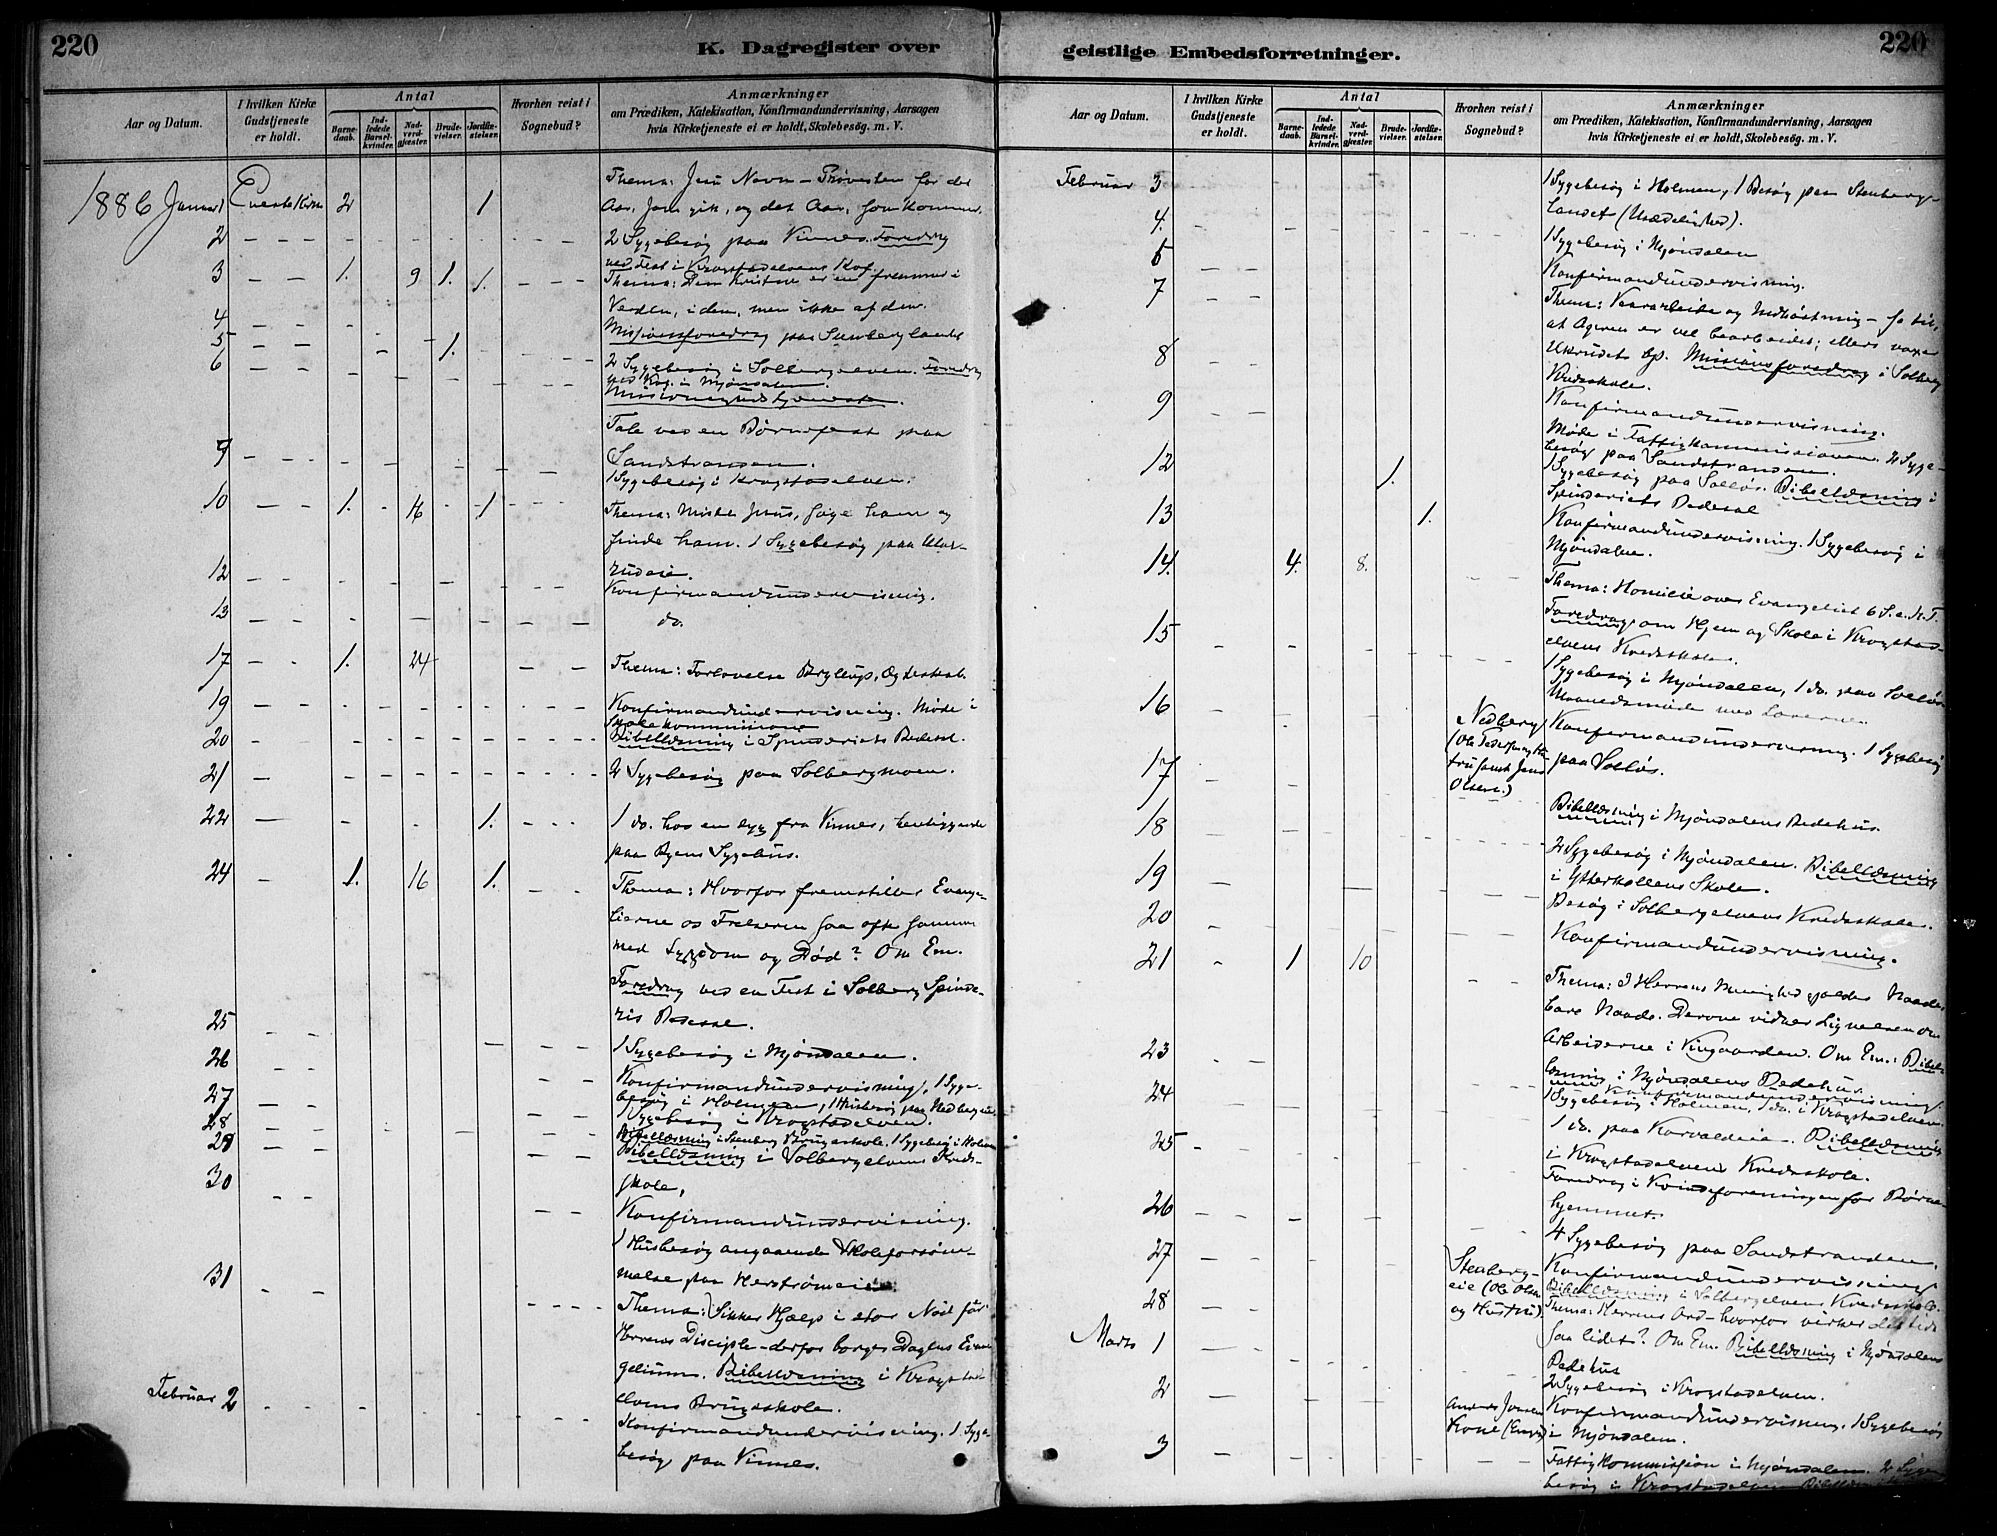 220
K. Dagregister over
Aar og Datum.
I hvilken Kirke Gudstjeneste er holdt.
Antal
Barne-daab.
Ind-ledede Barsel-kvinder.
Nad-verd-gjæster.
Brude-vielser.
Jordfæ-stelser.
Hvorhen reist i Sognebud?
Anmærkninger
om Prædiken, Katekisation, Konfirmandundervisning, Aarsagen
hvis Kirketjeneste ei er holdt, Skolebesøg. m. V.
1886 Januar 1 Kirke 2 1 Thema: Jesu Navn – Prøvesten for det
Aar, som gik, og det Aar, som kommer.
2 2 Sygebesøg paa Vinnes. Foredrag
ved Fest i Krogstadelvens
3 1. 9 1. 1. Thema: Den Kristne er en fremmed i
Verden, i den, men ikke af den.
4 Missionsforedrag paa Stenberglandet
5 1.
6 2 Sygebesøg i Solbergelven. Foredrag
ved i Mjøndalen.
9 Tale ved en Børnefest paa
Sandstranden.
1 Sygebesøg i Krogstadelven.
10 1. 16 1 Thema: Miste Jesus, søge ham og
finde ham. 1 Sygebesøg paa
12 Konfirmandundervisning.
13 do.
17 1. 24 Thema: Forlovelse Bryllup, Ægteskab.
19 Konfirmandundervisning. Møde i
Skolekommissionen
20 Bibellæsning i Spinderiets Bedesal.
21 2 Sygebesøg paa Solbergmoen.
22 1. 1 do. hos en syg fra Vinnes, henliggende
paa Byens Sygehus.
24 1. 16 1. Thema: Hvorfor fremstiller Evange-
lierne os Frelseren saa ofte sammen
med Sygdom og Død? Om Em.
Foredrag ved en Fest i Solberg Spinde-
ris Bedesal.
25 1 Sygebesøg i Mjøndalen.
26 Konfirmandundervisning, 1 Syge-
besøg i Holmen, 1 Husbesøg paa
27 1 Sygebesøg i Krogstadelven.
28 Bibellæsning i Stenberg Brugsskole. 1 Sygebesøg i Holmen
29 Bibellæsning i Solbergelvens Kreds-
skole,
30 Konfirmandundervisning.
1 Husbesøg angaaende Skoleforsøm-
melse paa
31 Thema: Sikker Hjælp i stor Nød for
Herrens Disciple – derfor borger Dagens Evan-
gelium. Bibellæsning i Krogstad-
elvens Brugsskole.
Februar 2 Konfirmandundervisning. 1 Syge-
besøg paa Vinnes.
geistlige Embedsforretninger.
220
Aar og Datum.
I hvilken Kirke Gudstjeneste er holdt.
Antal
Barne-daab.
Ind-ledede Barsel-kvinder.
Nad-verd-gjæster.
Brude-vielser.
Jordfæ-stelser.
Hvorhen reist i Sognebud?
Anmærkninger
om Prædiken, Katekisation, Konfirmandundervisning, Aarsagen
hvis Kirketjeneste ei er holdt, Skolebesøg. m. V.
Februar 3 1 Sygebesøg i Holmen, 1 Besøg paa Stenberg-
landet (Usædelighed).
4. 1 Sygebesøg i Mjøndalen
5 Konfirmandundervisning.
7 Thema: Vaararbeide og Indhøstning –
at Ageren er vel bearbeidet; ellers voxer
Ukrudet op. Missionsforedrag i Solberg
Kredsskole.
8
9 Konfirmandundervisning.
Møde i Fattigkommissionen. 2 Syge-
besøg paa Sandstranden.
12 1. 1 Sygebesøg paa Solløs. Bibellæsning i
Spinderiets Bedesal
13 1. Konfirmandundervisning. 1 Sygebesøg i
Mjøndalen.
14. 4. 8. Thema: Homilie over Evangeliet 6 S. e. H. 3 K.
Foredrag om Hjem og Skole i Krogstad-
elvens Kredsskole.
15 1 Sygebesøg i Mjøndalen, 1 do. paa Solløs
Maanedsmøde med Lærerne.
16 Nedberg Konfirmandundervisning. 1 Sygebesøg
paa Solløs.
17
18 Bibellæsning i Mjøndalens Bedehus.
19 2 Sygebesøg i Mjøndalen. Bibellæsning
i Ytterkollens Skole.
20 Besøg i Solbergelvens Kredsskole.
Konfirmandundervisning.
21 1 10 Thema: I Herrens Menighed gjælder Naade,
bare Naade. Derom vidner Lignelsen om
Arbeiderne i Vingaarden. Om Em.: Bibel-
læsning i Mjøndalens Bedehus
23 Konfirmandundervisning
24 1 Sygebesøg i Holmen, 1 do. i Krogstadelven.
25 1 do. paa Bibellæsning
i Krogstadelvens Kredsskole.
26 Foredrag i Kvindeforeningen for Børne-
hjemmet.
27 4 Sygebesøg paa Sandstranden.
Stenberg-
eie (Ole Olsen
og Hustru). Konfirmandundervisning
Bibellæsning i Solbergelvens Kredsskole.
28 Thema: Herrens Ord – hvorfor virker det tidt
saa lidet? Om Em. Bibellæsning i Mjøndalens
Bedehus
Marts 1 2 Sygebesøg i Krogstadelven.
2 Konfirmandundervisning. 1 Sygebesøg
i Mjøndalen.
3 Fattigkommission i Mjøndalen. 2 Syge-
besøg i Krogstadelven